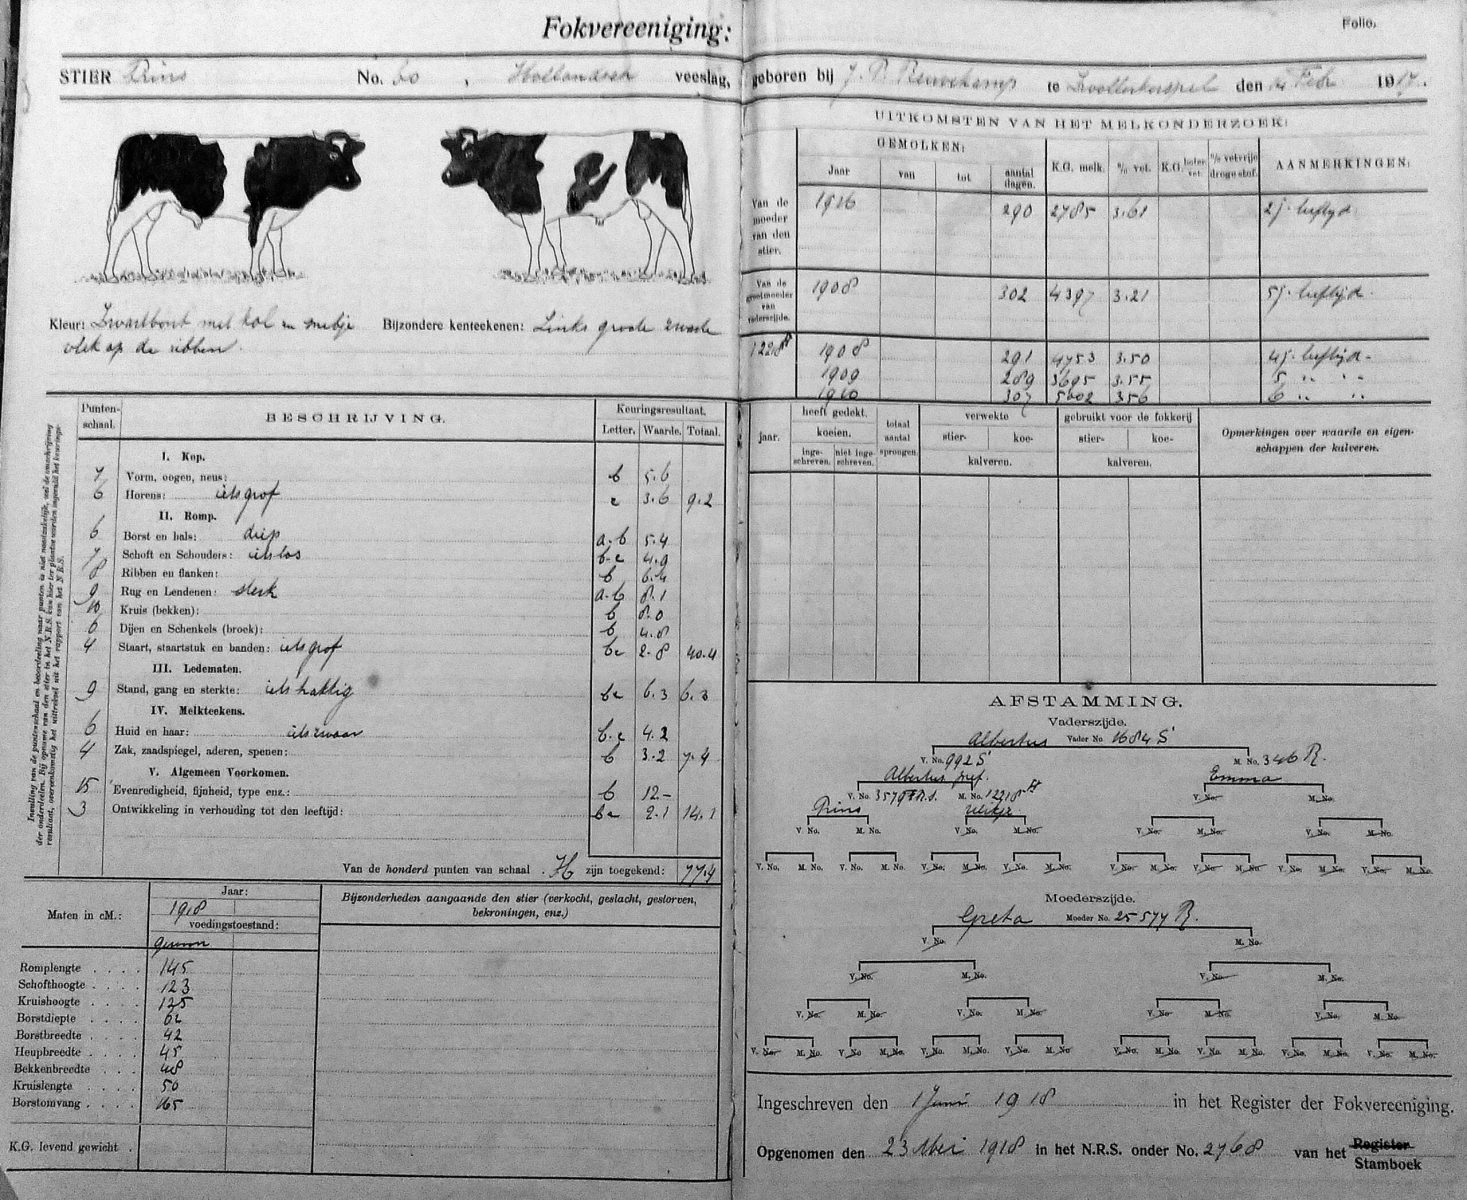 Fokvereeniging:
Folio.
STIER Prins No. 60, Hollandsch veeslag, geboren bij J. P. te den 14 Febr 1917.
UITKOMSTEN VAN HET MELKONDERZOEK:
GEMOLKEN:
Jaar van tot aantal dagen. K.G. melk. % vet. K.G. boter vet. % vetvrije droge stof. AANMERKINGEN:
Van de moeder van den stier. 1916 290 2785 3.61 2 j. leeftijd
Van de grootmoeder van vaderszijde. 1908 302 4397 3.21 5 j. leeftijd.
12218 1908 291 4753 3.50 4 j. leeftijd-
1909 289 3695 3.55 5 " "
1910 307 5002 356 6 " "
Kleur: Zwartbont met kol en snebje Bijzondere kenteekenen: Links groote zwarte
vlek op de ribben.
Punten-schaal. BESCHRIJVING. Keuringsresultaat.
Letter. Waarde. Totaal.
I. Kop.
7 Vorm, oogen, neus: b 5.6
6 Horens: iets grof c 3.6 9.2
II. Romp.
6 Borst en hals: diep a-b 5.4
7 Schoft en Schouders: iets los b-c 4.9
8 Ribben en flanken: b 6.4
9 Rug en Lendenen: sterk a-b 8.1
10 Kruis (bekken): b 8.0
6 Dijen en Schenkels (broek): b 4.8
4 Staart, staartstuk en banden: iets grof bc 2.8 40.4
III. Ledematen.
9 Stand, gang en sterkte: iets hakkig bc 6.3 6.3
IV. Melkteekens.
6 Huid en haar: iets zwaar b-c 4.2
4 Zak, zaadspiegel, aderen, spenen: b 3.2 7.4
V. Algemeen Voorkomen.
15 Evenredigheid, fijnheid, type enz.: b 12-
3 Ontwikkeling in verhouding tot den leeftijd: bc 2.1 14.1
Van de honderd punten van schaal H zijn toegekend: 77.4
Maten in cM.: Jaar:
1918
voedingstoestand:
gewoon
Romplengte 145
Schofthoogte 123
Kruishoogte 125
Borstdiepte 62
Borstbreedte 42
Heupbreedte 45
Bekkenbreedte 48
Kruislengte 50
Borstomvang 165
K.G. levend gewicht
Bijzonderheden aangaande den stier (verkocht, geslacht, gestorven,
bekroningen, enz.)
jaar. heeft gedekt. koeien. inge-schreven. niet inge-schreven. totaal aantal sprongen. verwekte stier- koe- kalveren. gebruikt voor de fokkerij stier- koe- kalveren. Opmerkingen over waarde en eigen-schappen der kalveren.
AFSTAMMING.
Vaderszijde.
Albertus Vader No 1684 S
V. No. 992 S M. No. 346 R.
Albertus pref. Emma
V. No. 3579 F.R.S. M. No. 12218 V. No. M. No.
Prins
V. No. M. No. V. No. M. No. V. No. M. No. V. No. M. No.
V. No. M. No. V. No. M. No. V. No. M. No. V. No. M. No. V. No. M. No. V. No. M. No. V. No. M. No. V. No. M. No.
Moederszijde.
Greta Moeder No. 25577 R.
V. No. M. No.
V. No. M. No. V. No. M. No.
V. No. M. No. V. No. M. No. V. No. M. No. V. No. M. No.
V. No. M. No. V. No M. No. V. No. M. No. V. No. M. No V. No. M. No. V. No. M. No. V. No. M. No. V. No. M. No.
Ingeschreven den 1 Juni 1918 in het Register der Fokvereeniging.
Opgenomen den 23 Mei 1918 in het N.R.S. onder No. 2768 van het Register
Stamboek